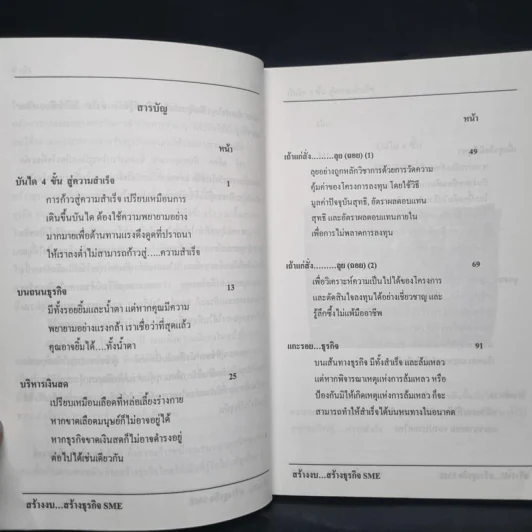 สารบัญ
หน้า
บันได 4 ขั้น สู่ความสำเร็จ 1
การก้าวสู่ความสำเร็จ เปรียบเหมือนการ
เดินขึ้นบันได ต้องใช้ความพยายามอย่าง
มากมายเพื่อต้านทานแรงดึงดูดที่ปรารถนา
ให้เราลงต่ำไม่สามารถก้าวสู่.....ความสำเร็จ
บนถนนธุรกิจ 13
มีทั้งรอยยิ้มและน้ำตา แต่หากคุณมีความ
พยายามอย่างแรงกล้า เราเชื่อว่าที่สุดแล้ว
คุณอาจยิ้มได้....ทั้งน้ำตา
บริหารเงินสด 25
เปรียบเหมือนเลือดที่หล่อเลี้ยงร่างกาย
หากขาดเลือดมนุษย์ก็ไม่อาจอยู่ได้
หากธุรกิจขาดเงินสดก็ไม่อาจดำรงอยู่
ต่อไปได้เช่นเดียวกัน
สร้างงบ...สร้างธุรกิจ SME
หน้า
เถ้าแก่สั่ง.........ลุย (ถอย) (1) 49
ลุยอย่างถูกหลักวิชาการด้วยการวัดความ
คุ้มค่าของโครงการลงทุน โดยใช้วิธี
มูลค่าปัจจุบันสุทธิ, อัตราผลตอบแทน
สุทธิ และอัตราผลตอบแทนภายใน
เพื่อการไม่พลาดการลงทุน
เถ้าแก่สั่ง.........ลุย (ถอย) (2) 69
เพื่อวิเคราะห์ความเป็นไปได้ของโครงการ
และตัดสินใจลงทุนได้อย่างเชี่ยวชาญ และ
รู้ลึกซึ้งไม่แพ้มืออาชีพ
แกะรอย...ธุรกิจ 91
บนเส้นทางธุรกิจ มีทั้งสำเร็จ และล้มเหลว
แต่หากพิจารณาเหตุแห่งการล้มเหลว หรือ
ป้องกันมิให้เกิดเหตุแห่งการล้มเหลว ก็จะ
สามารถทำให้สำเร็จได้บนหนทางในอนาคต
สร้างงบ...สร้างธุรกิจ SME